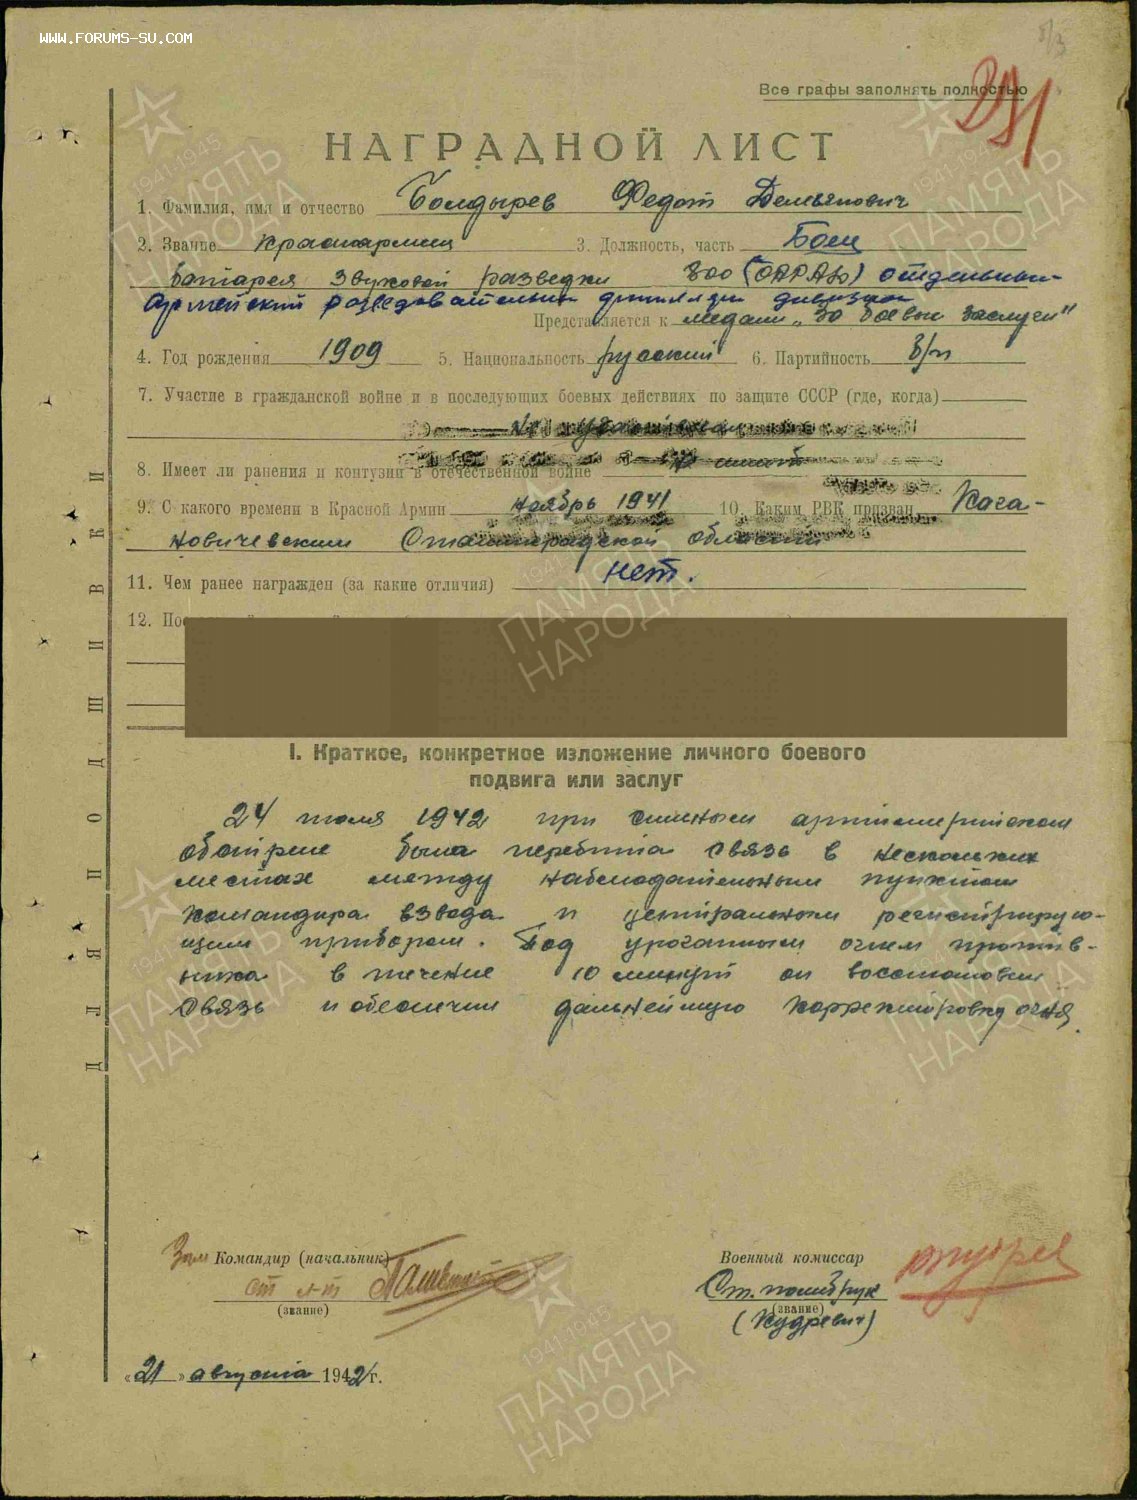 WWW.FORUMS-SU.COM
Все графы заполнять полностью
НАГРАДНОЙ ЛИСТ
1. Фамилия, имя и отчество Болдырев Федот Демьянович
2. Звание Красноармеец 3. Должность, часть Боец
Батарея Звуковой разведки 800 (ОАРАД) отдельный
Армейский разведовательный дивизион
Представляется к медали „За боевые заслуги"
4. Год рождения 1909 5. Национальность русский 6. Партийность б/п
7. Участие в гражданской войне и в последующих боевых действиях по защите СССР (где, когда)
Не участвовал
8. Имеет ли ранения и контузии в отечественной войне Не имеет
9. С какого времени в Красной Армии Ноябрь 1941 10. Каким РВК призван Кага-
новичевским Сталинградской области
11. Чем ранее награжден (за какие отличия) нет.
12.
I. Краткое, конкретное изложение личного боевого
подвига или заслуг
24 июля 1942 при сильном артиллерийском
обстреле была перебита связь в нескольких
местах между наблюдательным пунктом
командира взвода и центральным регистрирую-
щим прибором. Под ураганным огнем против-
ника в течение 10 минут он восстановил
связь и обеспечил дальнейшую корректировку огня.
Зам Командир (начальник)
ст л-т
(звание)
Военный комиссар
Ст. политрук
(звание)
(Кудревич)
«21» августа 1942 г.
ДЛЯ ПОДШИВКИ
ПАМЯТЬ НАРОДА
1941-1945